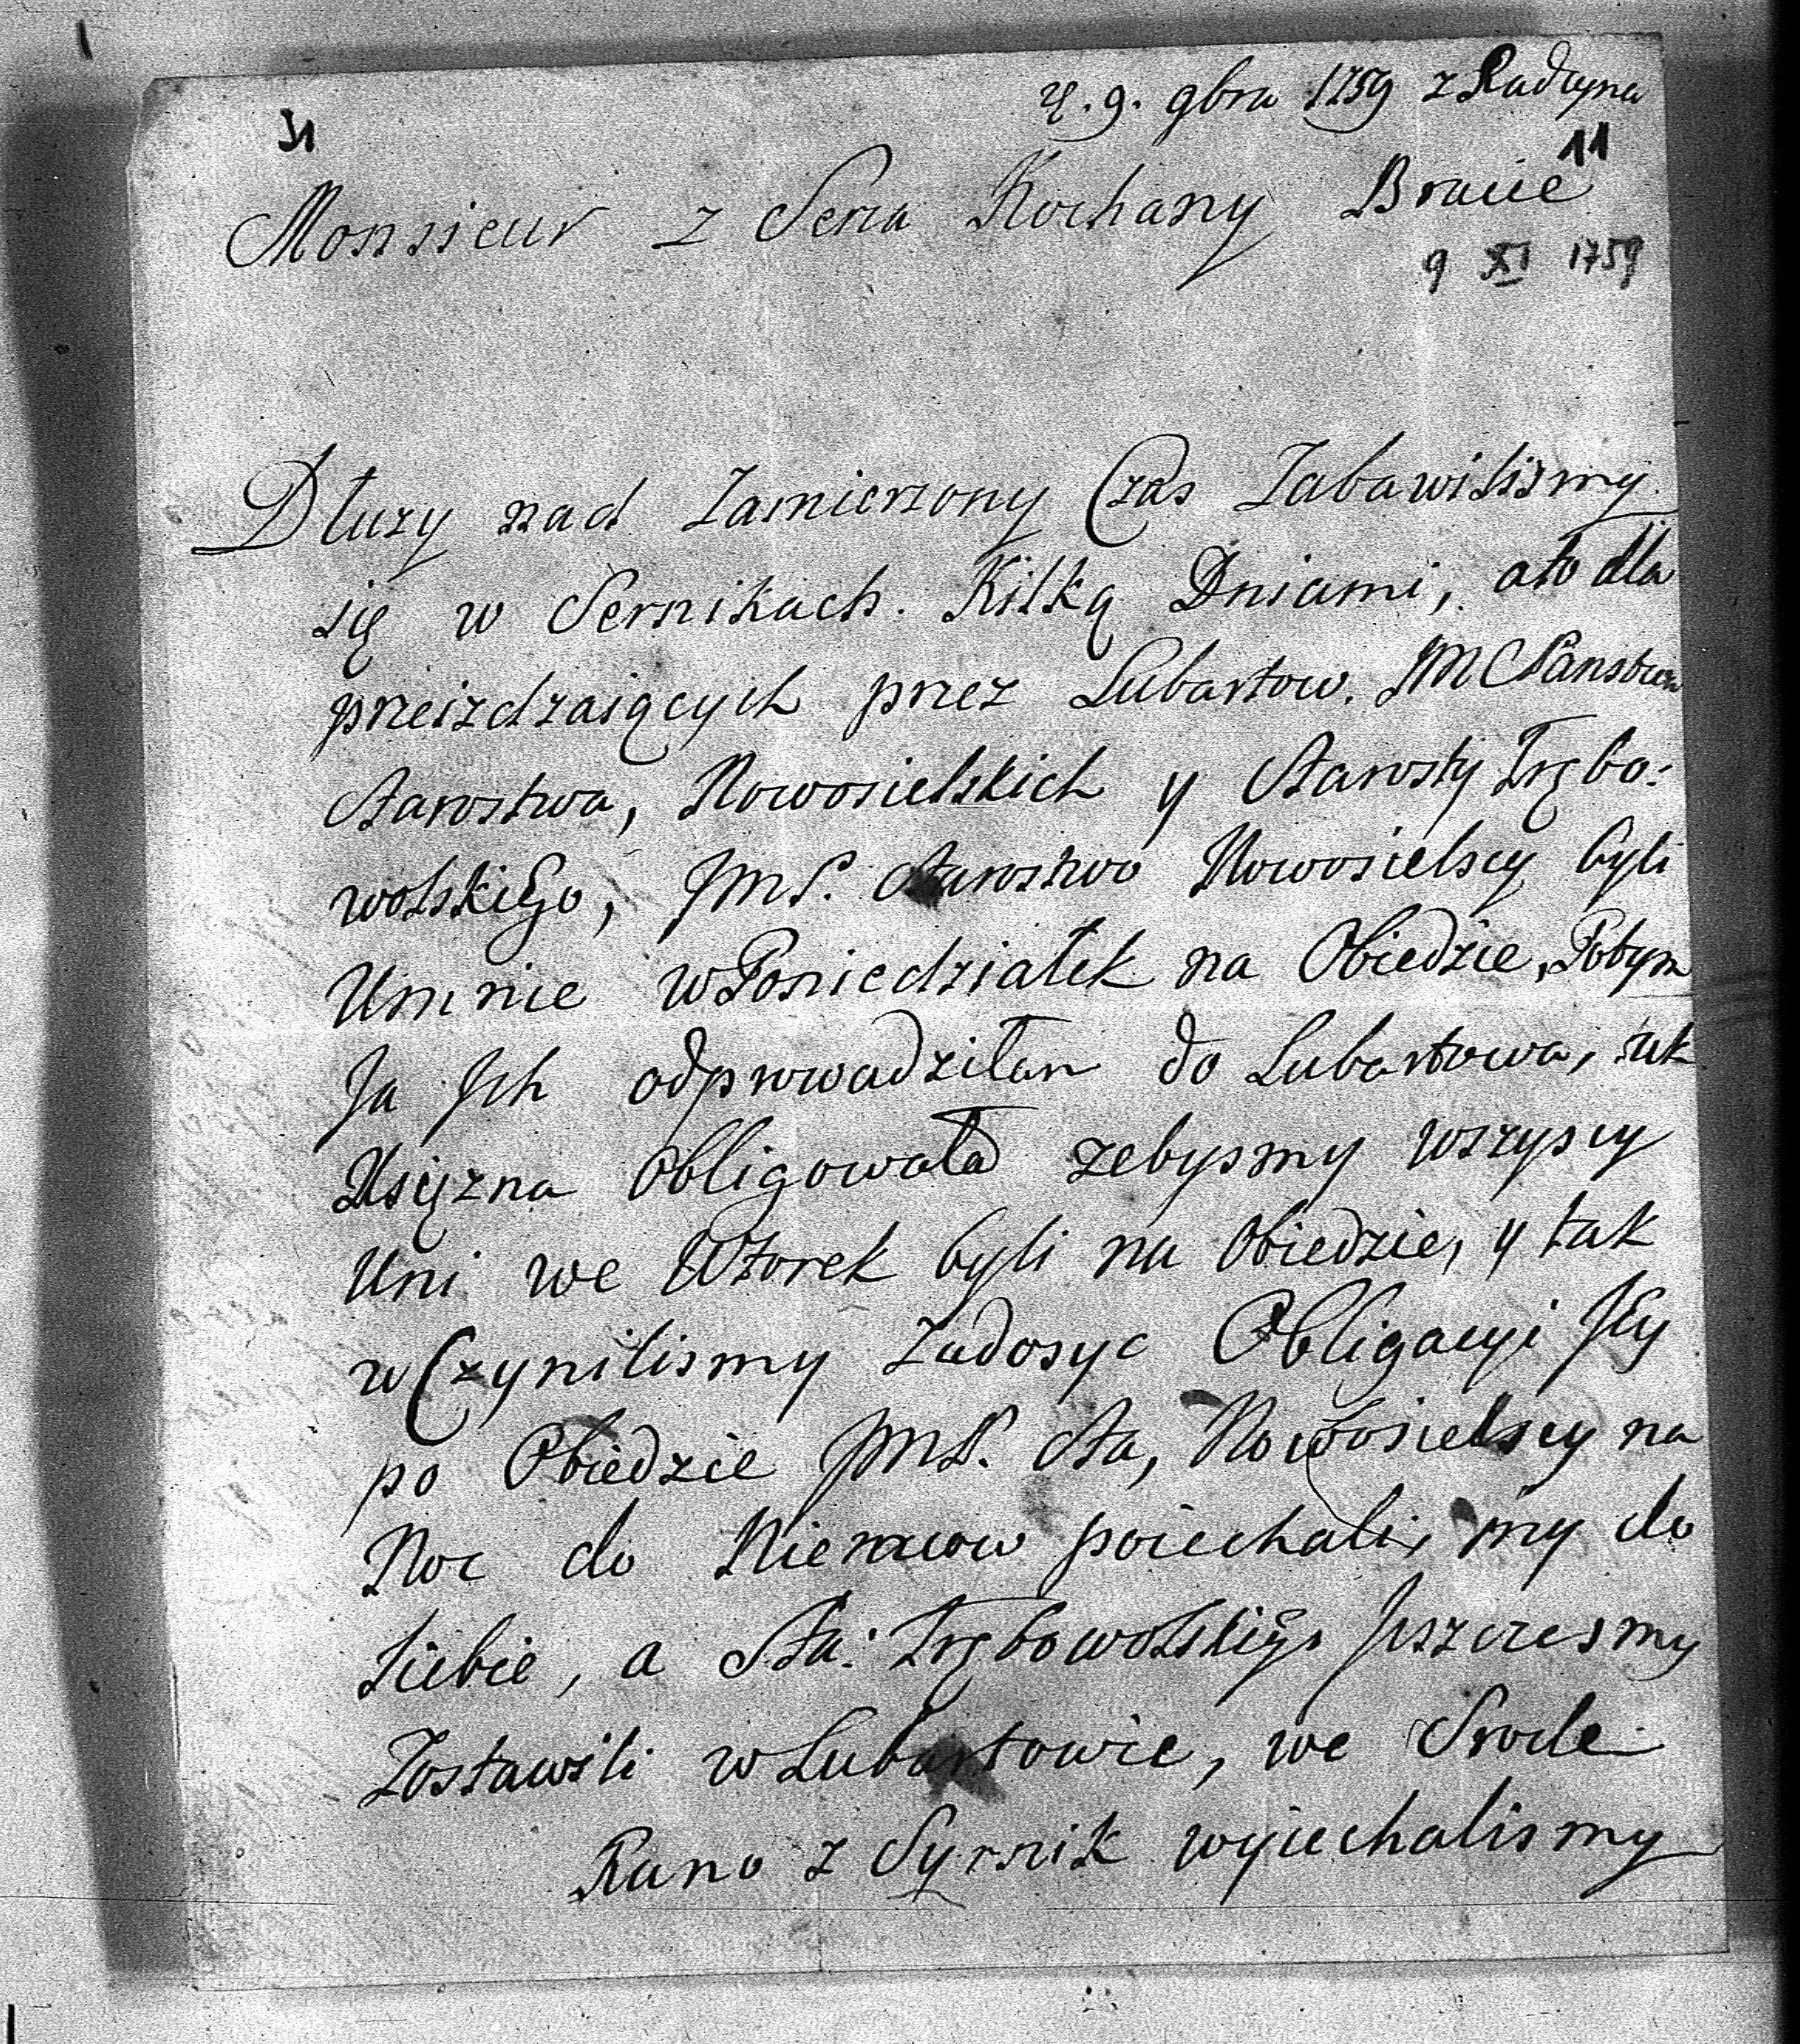 9. 9bra 1759 z Radzyna
11
Monsieur z Serca Kochany Bracie
9 XI 1759
Dłuzy nad Zamierzony Czas Zabawilismy
się w Sernikach. Kilką Dniami, ato dla
przeizdzaiących przez Lubartow. JMC Panstwa
Starostwa, Nowosielskich y Starosty Trębo:
wolskiego, JMP. Starostwo Nowosielscy byli
Umnie w Poniedziałek na Obiedzie, Potym
Ja Jch odprowadziłam do Lubartowa,
Xsiężna Obligowała zebysmy wszyscy
Uni we Wtorek byli na Obiedzie, y tak
wCzynilismy Zadosyc Obligacyi JEy
po Obiedzie JMP. Sta, Nowosielscy na
Noc do Niemcow poiechali, my do
siebie, a Sta: Trębowolskiego Jeszczesmy
Zostawili w Lubartowie, we Srode
Rano z Syrnik wyiechalismy